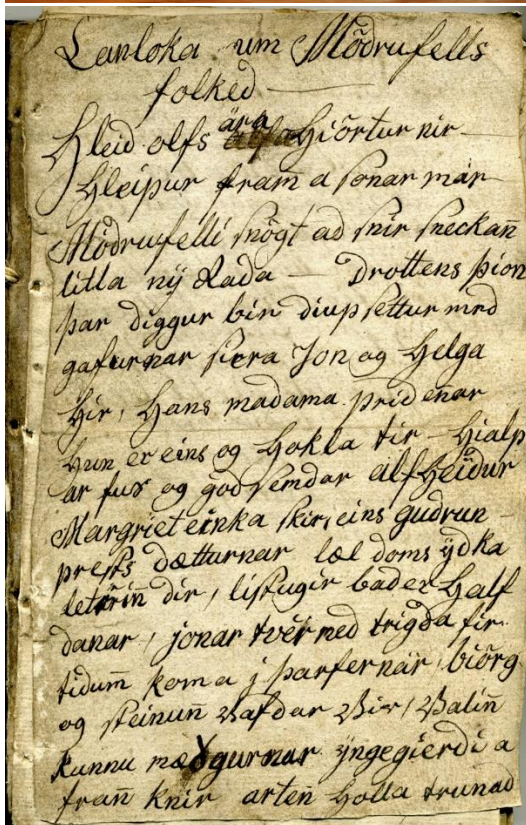 Lanloka um Mödrufells
folked —
Hleid olfs ära Hiörtur nir —
Hleipur fram a sonar mar
Mödrufelli snögt ad snir sneckan̄
litla nÿ Rada — Drottens þion
þar diggur bir diup settur med
gafurnar siera Jon og Helga
hir, Hans madama prid enar
Hun er eins og Hokla tir — Hialp
ar fus og god semdar alfheidur
Margriet einka skir, eins gudrun
prests dætturnar læl doms ÿdka
letrin dir, listugir bader Half
danar, jonar tveir med trigda fir.
tidum̄ koma j þarfernär, biörg
og steinun̄ vafdar vir, valin̄
kunnu mædgurnar ÿngegierdi a
fran̄ knir arten Holla trunad